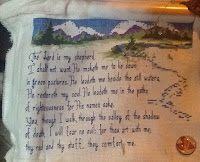 The Lord is my shepherd
I shall not want. He maketh me to lie down
in green pastures. He leadeth me beside the still waters,
He restoreth my soul. He leadeth me in the paths
of righteousness for His name's sake.
Yea, though I walk, through the valley of the shadow
of death, I will fear no evil: for thou art with me;
thy rod and thy staff, they comfort me.